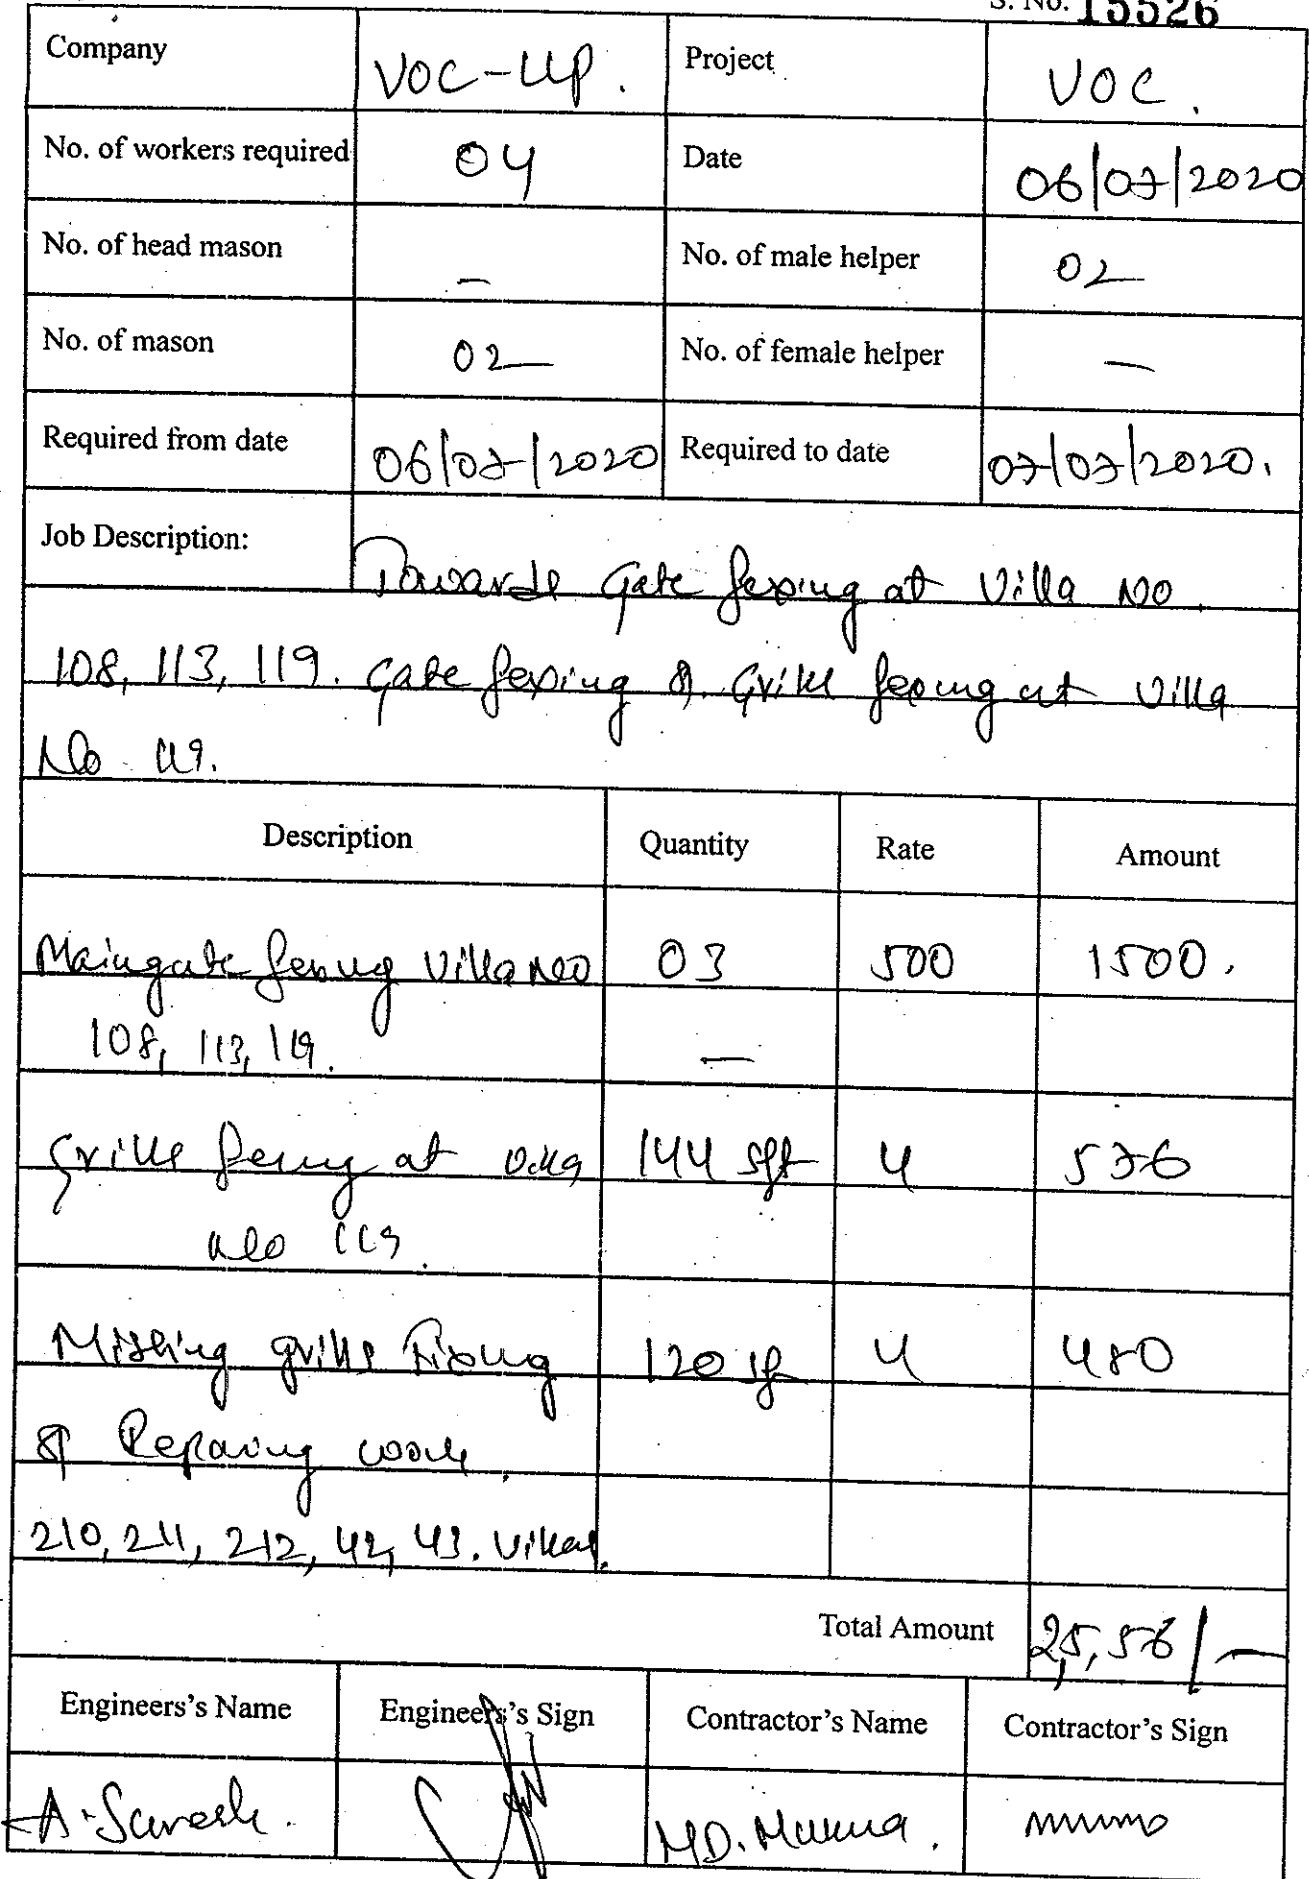 S. No. 15526
Company VOC-UP. Project VOC.
No. of workers required 04 Date 06/07/2020
No. of head mason — No. of male helper 02
No. of mason 02 No. of female helper —
Required from date 06/07/2020 Required to date 07/07/2020.
Job Description: Towards Gate fexing at Villa No.
108, 113, 119. Gate fexing & Grill fexing at Villa
No 119.
Description Quantity Rate Amount
Maingate fexing Villa No 03 500 1500.
108, 113, 119. —
Grills fexing at villa 144 sft 4 576
No 119.
Missing grills Fixing 120 sft 4 480
& Reparing work.
210, 211, 212, 42, 43. Villas.
Total Amount 25,56/-
Engineers's Name Engineers's Sign Contractor's Name Contractor's Sign
A. Suresh. MD. Munna.